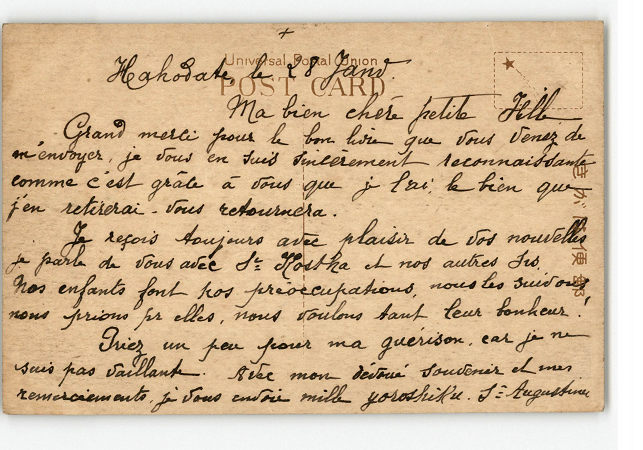 +
Universal Postal Union
POST CARD
Hakodate, le 28 Janv.
Ma bien chère petite Fille
Grand merci pour le bon livre que vous venez de
m'envoyer, je vous en suis sincèrement reconnaissante
comme c'est grâce à vous que je l'ai, le bien que
j'en retirerai vous retournera.
Je reçois toujours avec plaisir de vos nouvelles
je parle de vous avec St Kostka et nos autres Srs.
Nos enfants font nos préoccupations, nous les suivons,
nous prions pr elles, nous voulons tant leur bonheur!
Priez un peu pour ma guérison, car je ne
suis pas vaillante. Avec mon dévoué souvenir et mes
remerciements, je vous envoie mille yoroshiku. St Augustine
きが 便郵